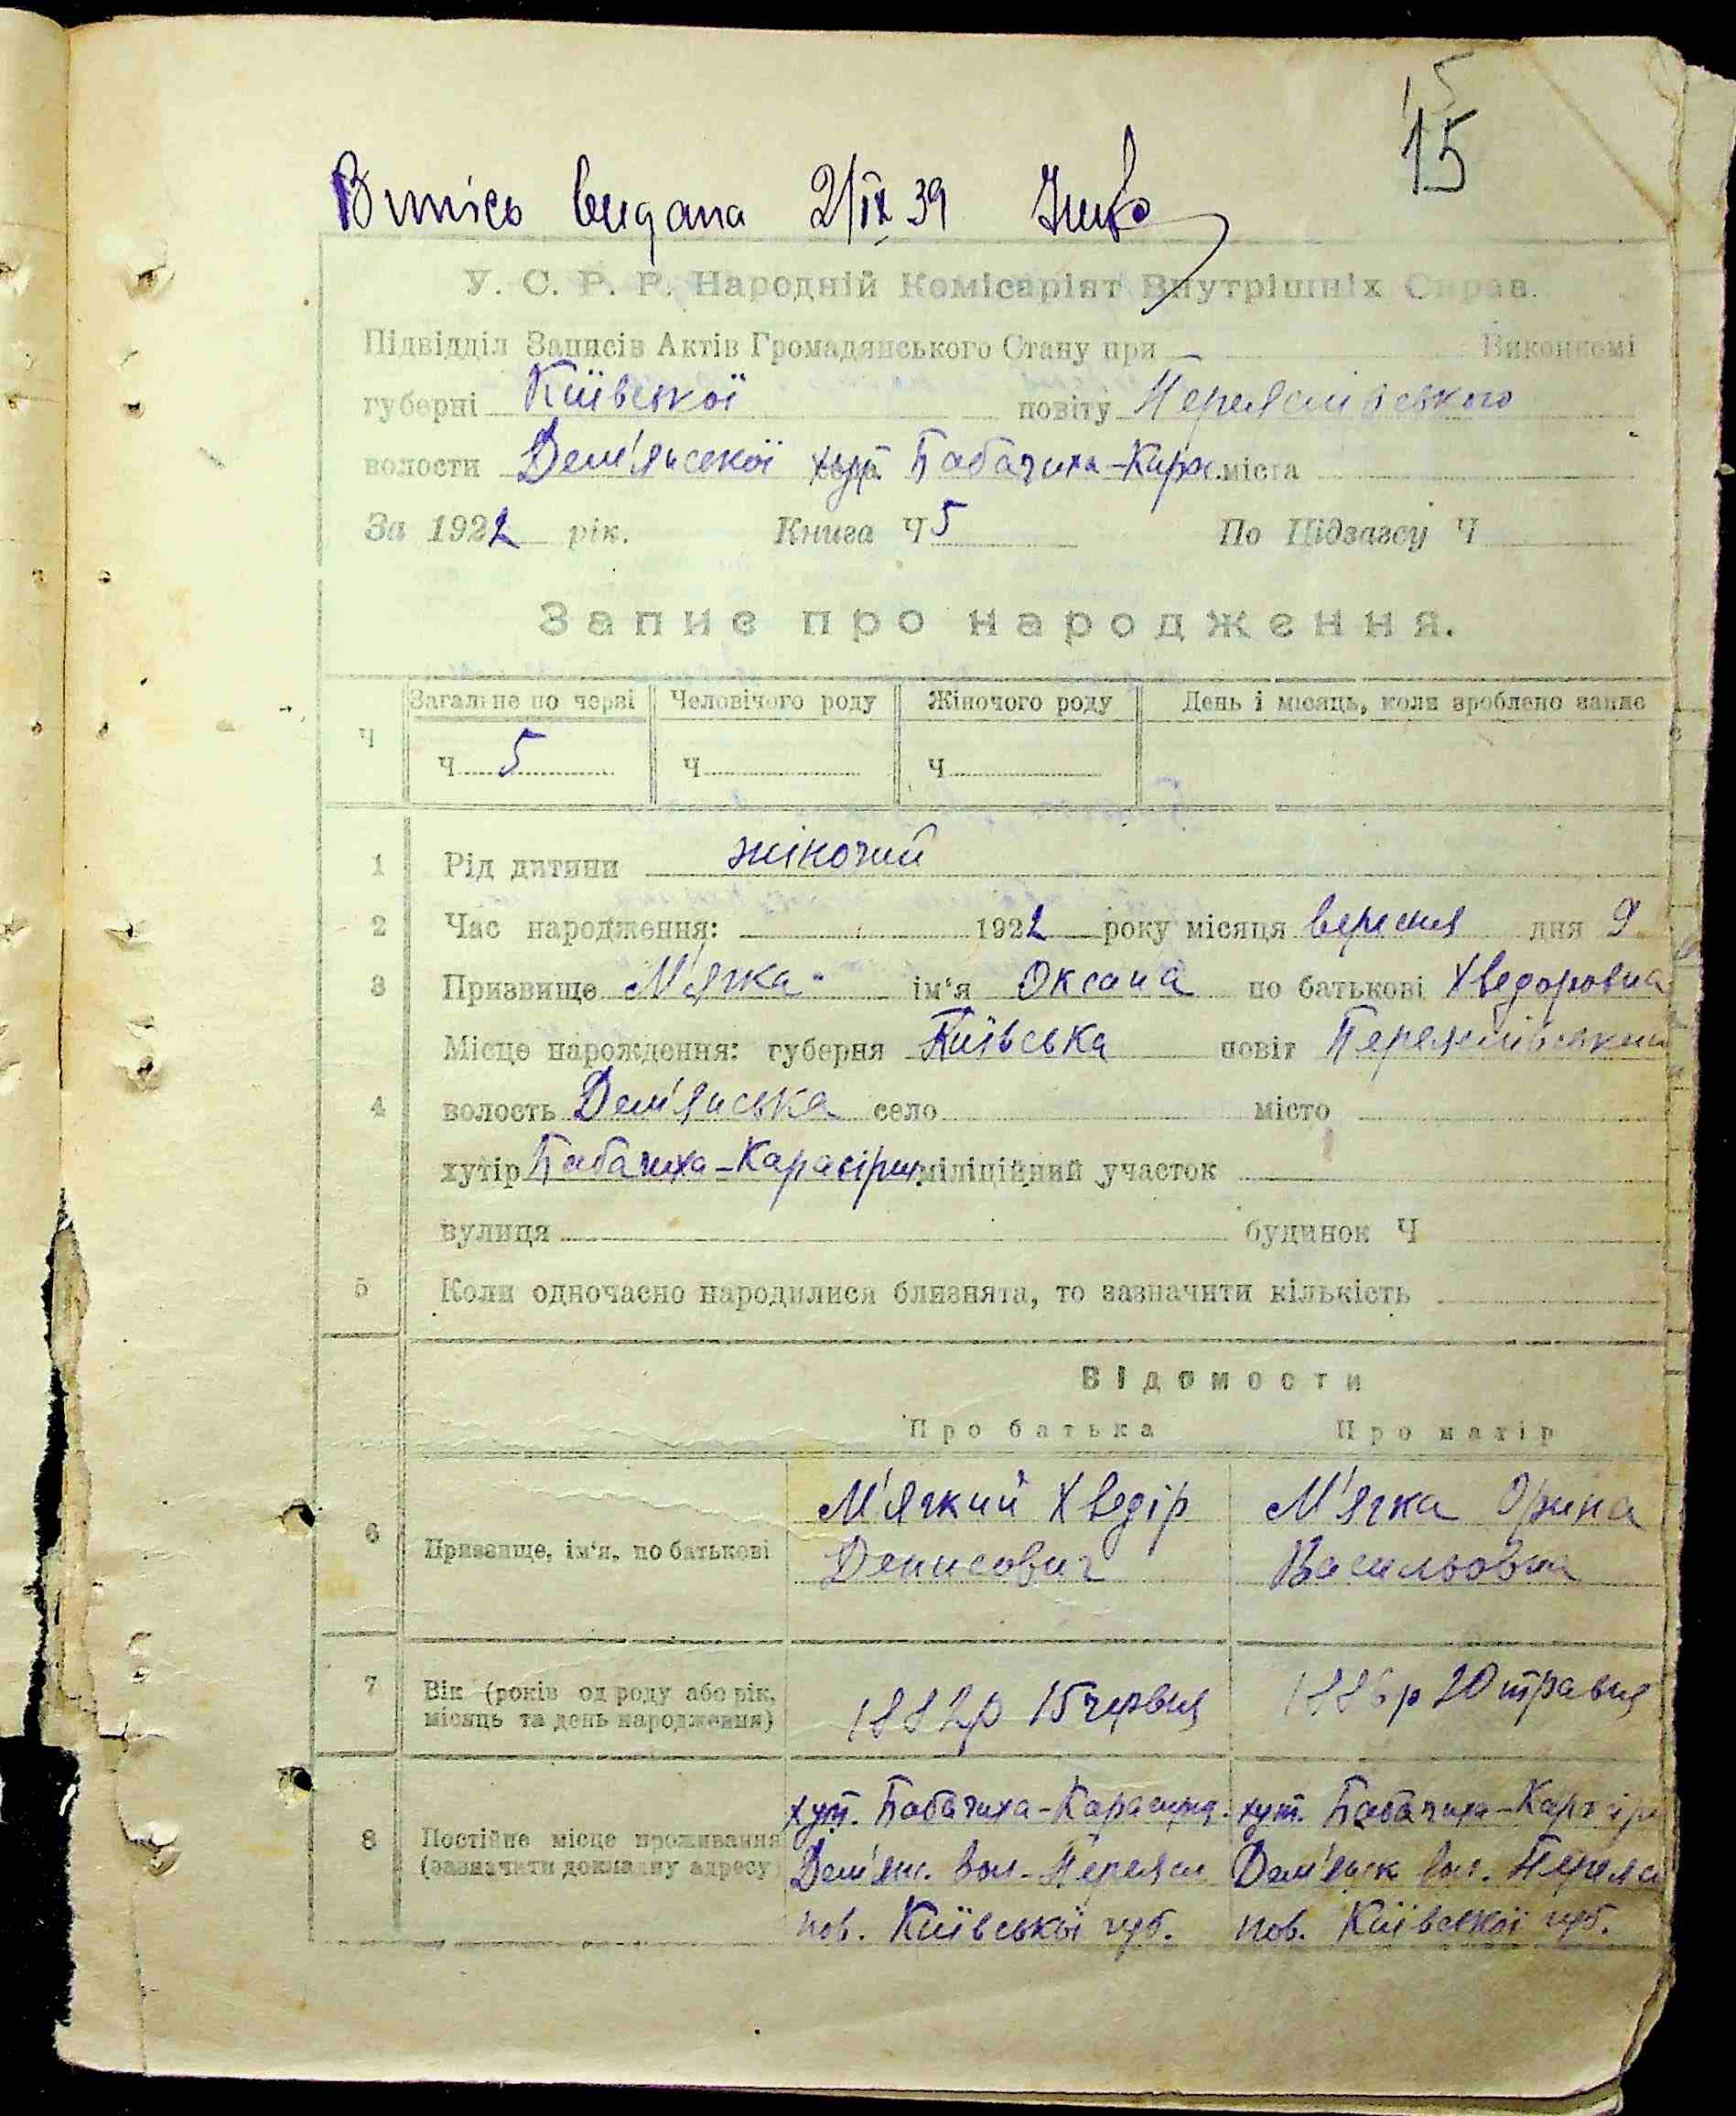 15
15
Витись видана 2/IX 39
У. С. Р. Р. Народній Комісаріят Внутрішніх Справ.
Підвідділ Записів Актів Громадянського Стану при Виконкомі
губерні Київської повіту Переяслівського
волости Дем'янської хут. Бабачиха-Кар. міста
За 1922 рік. Книга Ч 5 По Підзагсу Ч
Запис про народження.
Загальне по черзі Человічого роду Жіночого роду День і місяць, коли зроблено запис
Ч Ч 5 Ч Ч
1 Рід дитини жіночий
2 Час народження: 1922 року місяця вересня дня 9
3 Призвище М'ягка ім'я Оксана по батькові Хведоровна
Місце народження: губерня Київська повіт Переяслівський
4 волость Дем'янська село місто
хутір Бабачиха-Карасірщ міліційний участок
вулиця будинок Ч
5 Коли одночасно народилися близнята, то зазначити кількість
Відомости
Про батька Про матір
М'ягкий Хведір М'ягка Орина
6 Призвище, ім'я, по батькові Денисович Васильовна
7 Вік (років од роду або рік, місяць та день народження) 1882р 15 червня 1886р 20 травня
хут. Бабачиха- хут. Бабачиха-
8 Постійне місце проживання (зазначити докладну адресу) Дем'ян. вол. Переясл Дем'янск вол. Переясл
пов. Київської губ. пов. Київської губ.